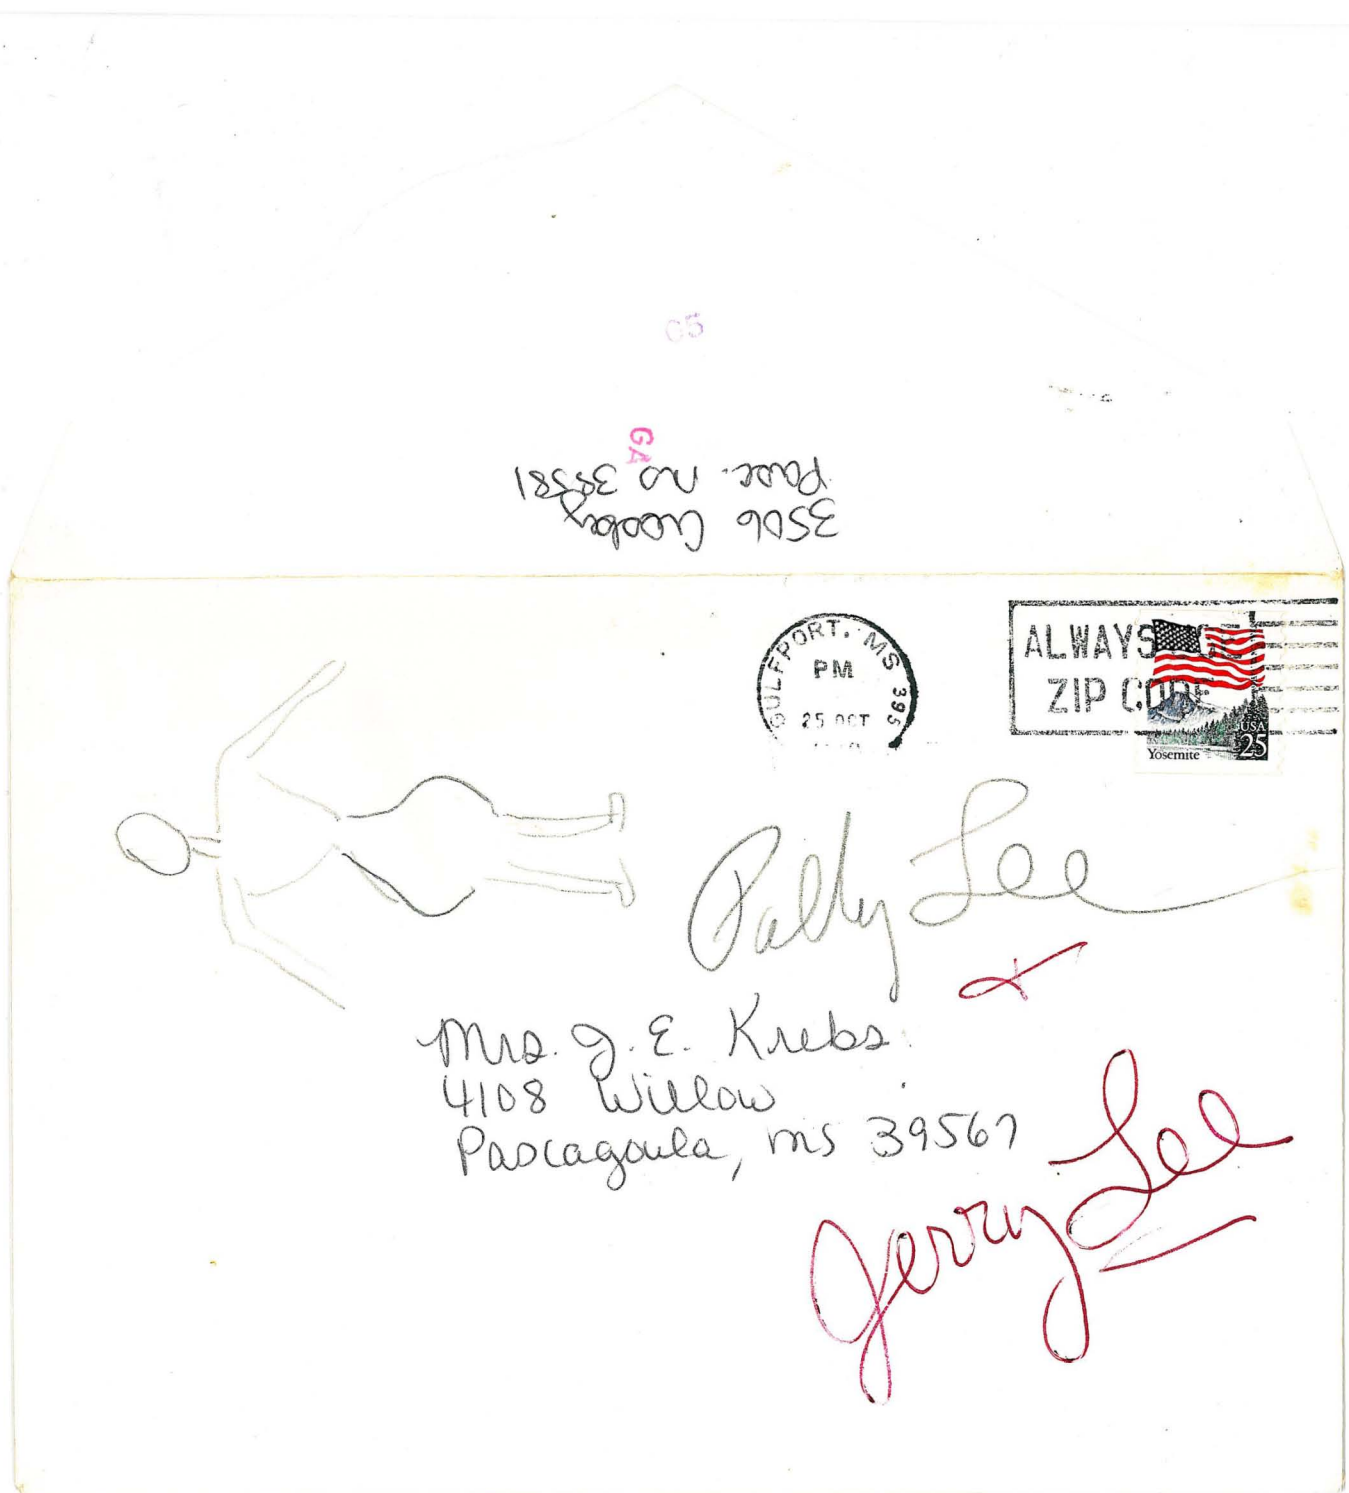 05
GA
3506 Crosby
Pasc. ms 39581
GULFPORT, MS 395
PM
25 OCT
ALWAYS USE
ZIP CODE
USA
25
Yosemite
Patty Lee
+
Mrs. J. E. Krebs
4108 Willow
Pascagoula, ms 39567
Jerry Lee